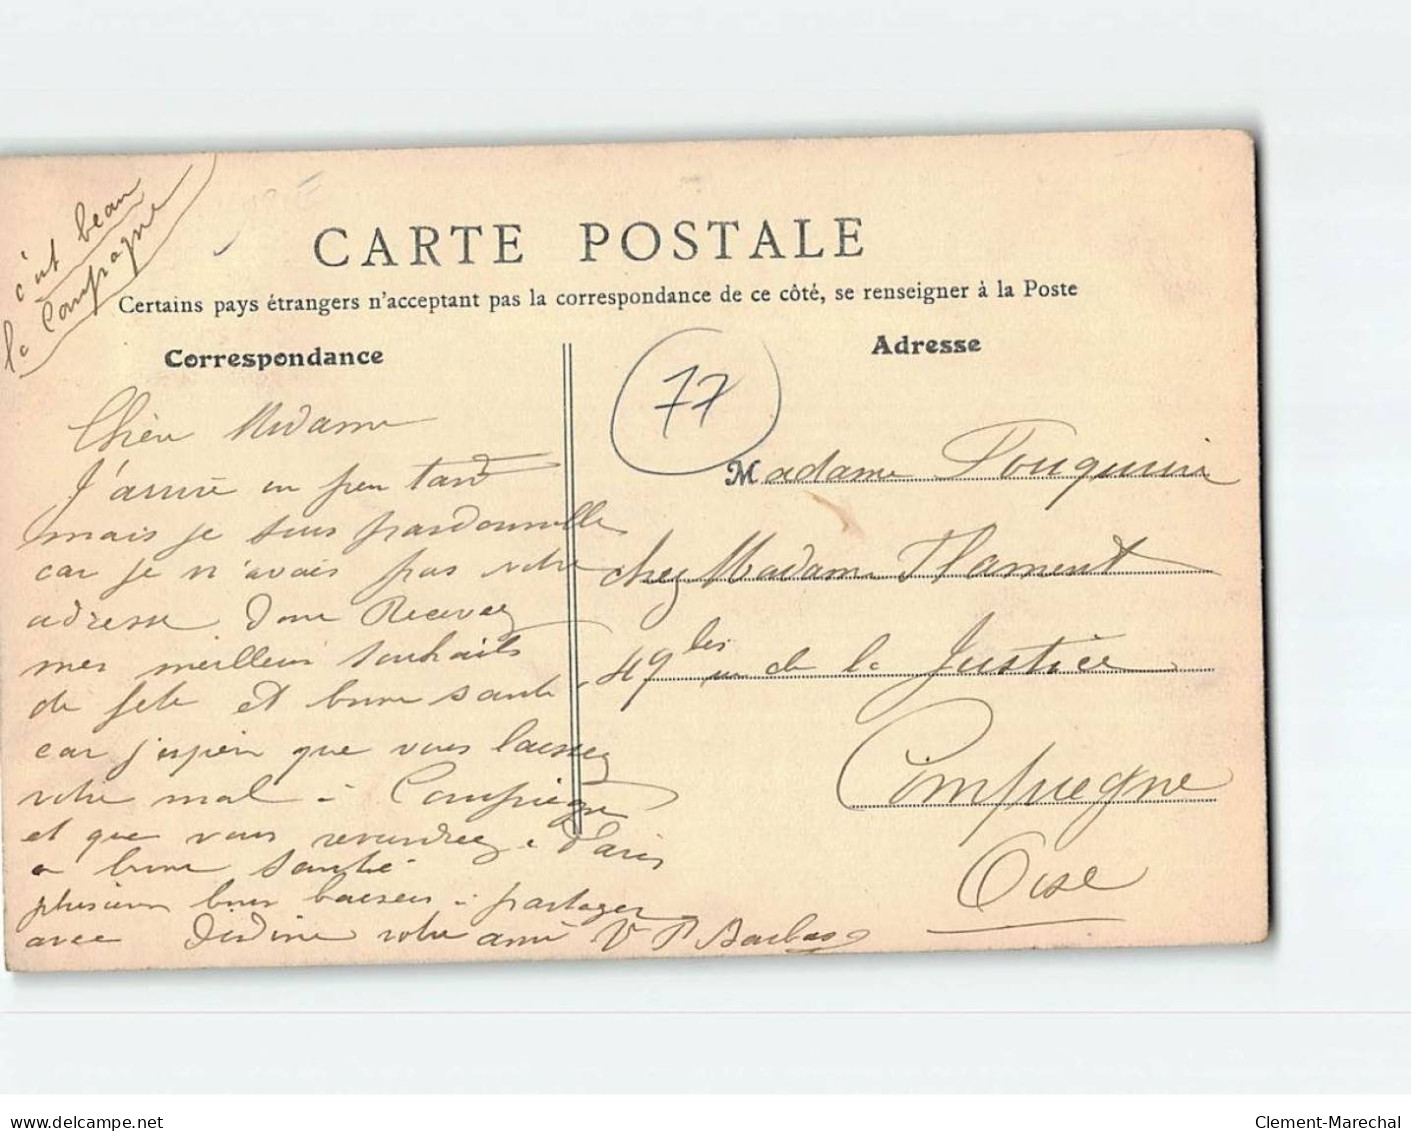 c'est beau
la Campagne
CARTE POSTALE
Certains pays étrangers n'acceptant pas la correspondance de ce côté, se renseigner à la Poste
Correspondance
Chère Madame
J'arrive un peu tard
mais je suis pardonnable
car je n'avais pas votre
adresse Donc Recevez
mes meilleurs souhaits
de fête et bonne santé
car j'espère que vous laissez
votre mal à Compiègne
et que vous reviendrez à Paris
en bonne santé
plusieurs bons baisers à partager
avec Didine votre amie V P Barbas
Adresse
77
Madame Fouquerin
chez Madame Flament
49 bis rue de la Justice
Compiegne
Oise
www.delcampe.net
Clement-Marechal